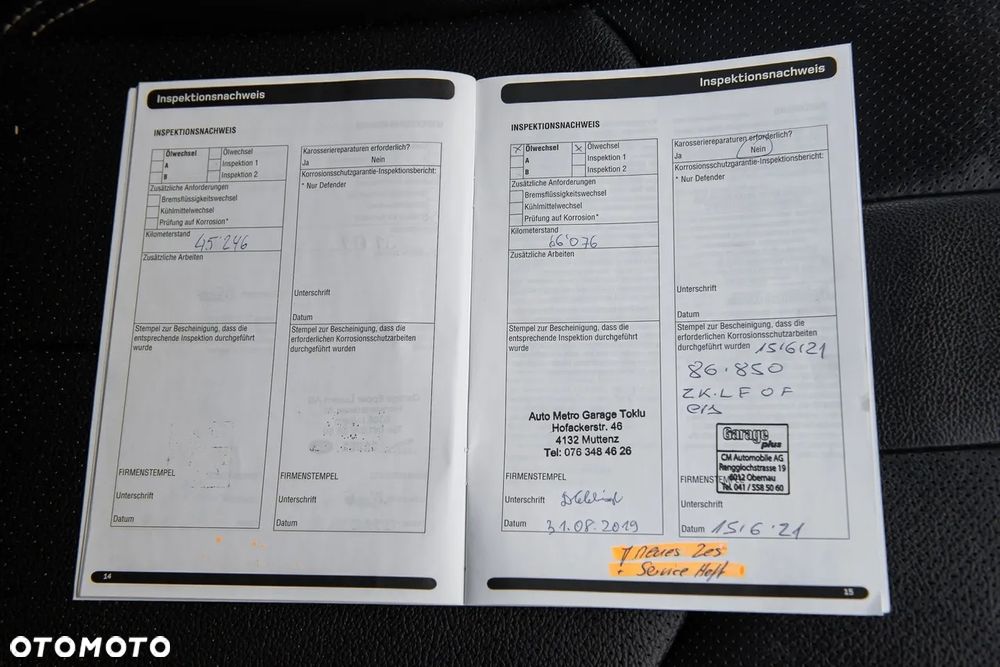 Inspektionsnachweis
INSPEKTIONSNACHWEIS
Ölwechsel
A
B
Ölwechsel
Inspektion 1
Inspektion 2
Zusätzliche Anforderungen
Bremsflüssigkeitswechsel
Kühlmittelwechsel
Prüfung auf Korrosion*
Kilometerstand
45'246
Zusätzliche Arbeiten
Stempel zur Bescheinigung, dass die
entsprechende Inspektion durchgeführt
wurde
FIRMENSTEMPEL
Unterschrift
Datum
Karosseriereparaturen erforderlich?
Ja Nein
Korrosionsschutzgarantie-Inspektionsbericht:
* Nur Defender
Unterschrift
Datum
Stempel zur Bescheinigung, dass die
erforderlichen Korrosionsschutzarbeiten
durchgeführt wurden
FIRMENSTEMPEL
Unterschrift
Datum
14
Inspektionsnachweis
INSPEKTIONSNACHWEIS
x Ölwechsel
A
B
x Ölwechsel
Inspektion 1
Inspektion 2
Zusätzliche Anforderungen
Bremsflüssigkeitswechsel
Kühlmittelwechsel
Prüfung auf Korrosion*
Kilometerstand
66'076
Zusätzliche Arbeiten
Stempel zur Bescheinigung, dass die
entsprechende Inspektion durchgeführt
wurde
Auto Metro Garage Toklu
Hofackerstr. 46
4132 Muttenz
Tel: 076 348 46 26
FIRMENSTEMPEL
Unterschrift
Datum 31.08.2019
Karosseriereparaturen erforderlich?
Ja Nein
Korrosionsschutzgarantie-Inspektionsbericht:
* Nur Defender
Unterschrift
Datum
Stempel zur Bescheinigung, dass die
erforderlichen Korrosionsschutzarbeiten
durchgeführt wurden 15'6'21
86.850
ZK.LF OF
Garage
plus
CM Automobile AG
Rengglochstrasse 19
6012 Obernau
Tel. 041 / 558 50 60
FIRMENSTEMPEL
Unterschrift
Datum 15'6'21
15
Neues
Service Heft
OTOMOTO